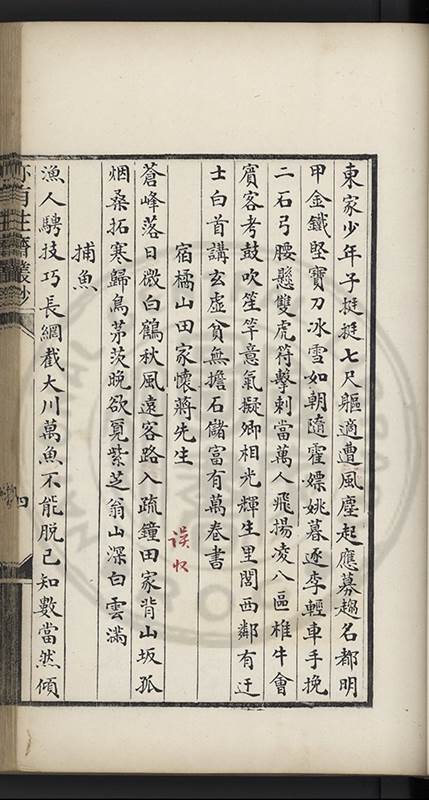 東家少年子挺挺七尺軀適遭風塵起應募趨名都明
甲金鐵堅寶刀冰雪如朝隨霍嫖姚暮逐李輕車手挽
二石弓腰懸雙虎符擊刺當萬人飛揚凌八區椎牛會
賓客考鼓吹笙竽意氣擬卿相光輝生里閭西鄰有迂
士白首講玄虛貧無擔石儲富有萬卷書
宿橘山田家懷蔣先生
誤收
蒼峰落日微白鷂秋風遠客路入疏鐘田家背山坂孤
烟桑拓寒歸鳥茅茨晚欲覓紫芝翁山深白雲滿
捕魚
漁人騁技巧長網截大川萬魚不能脫已知數當然傾
四